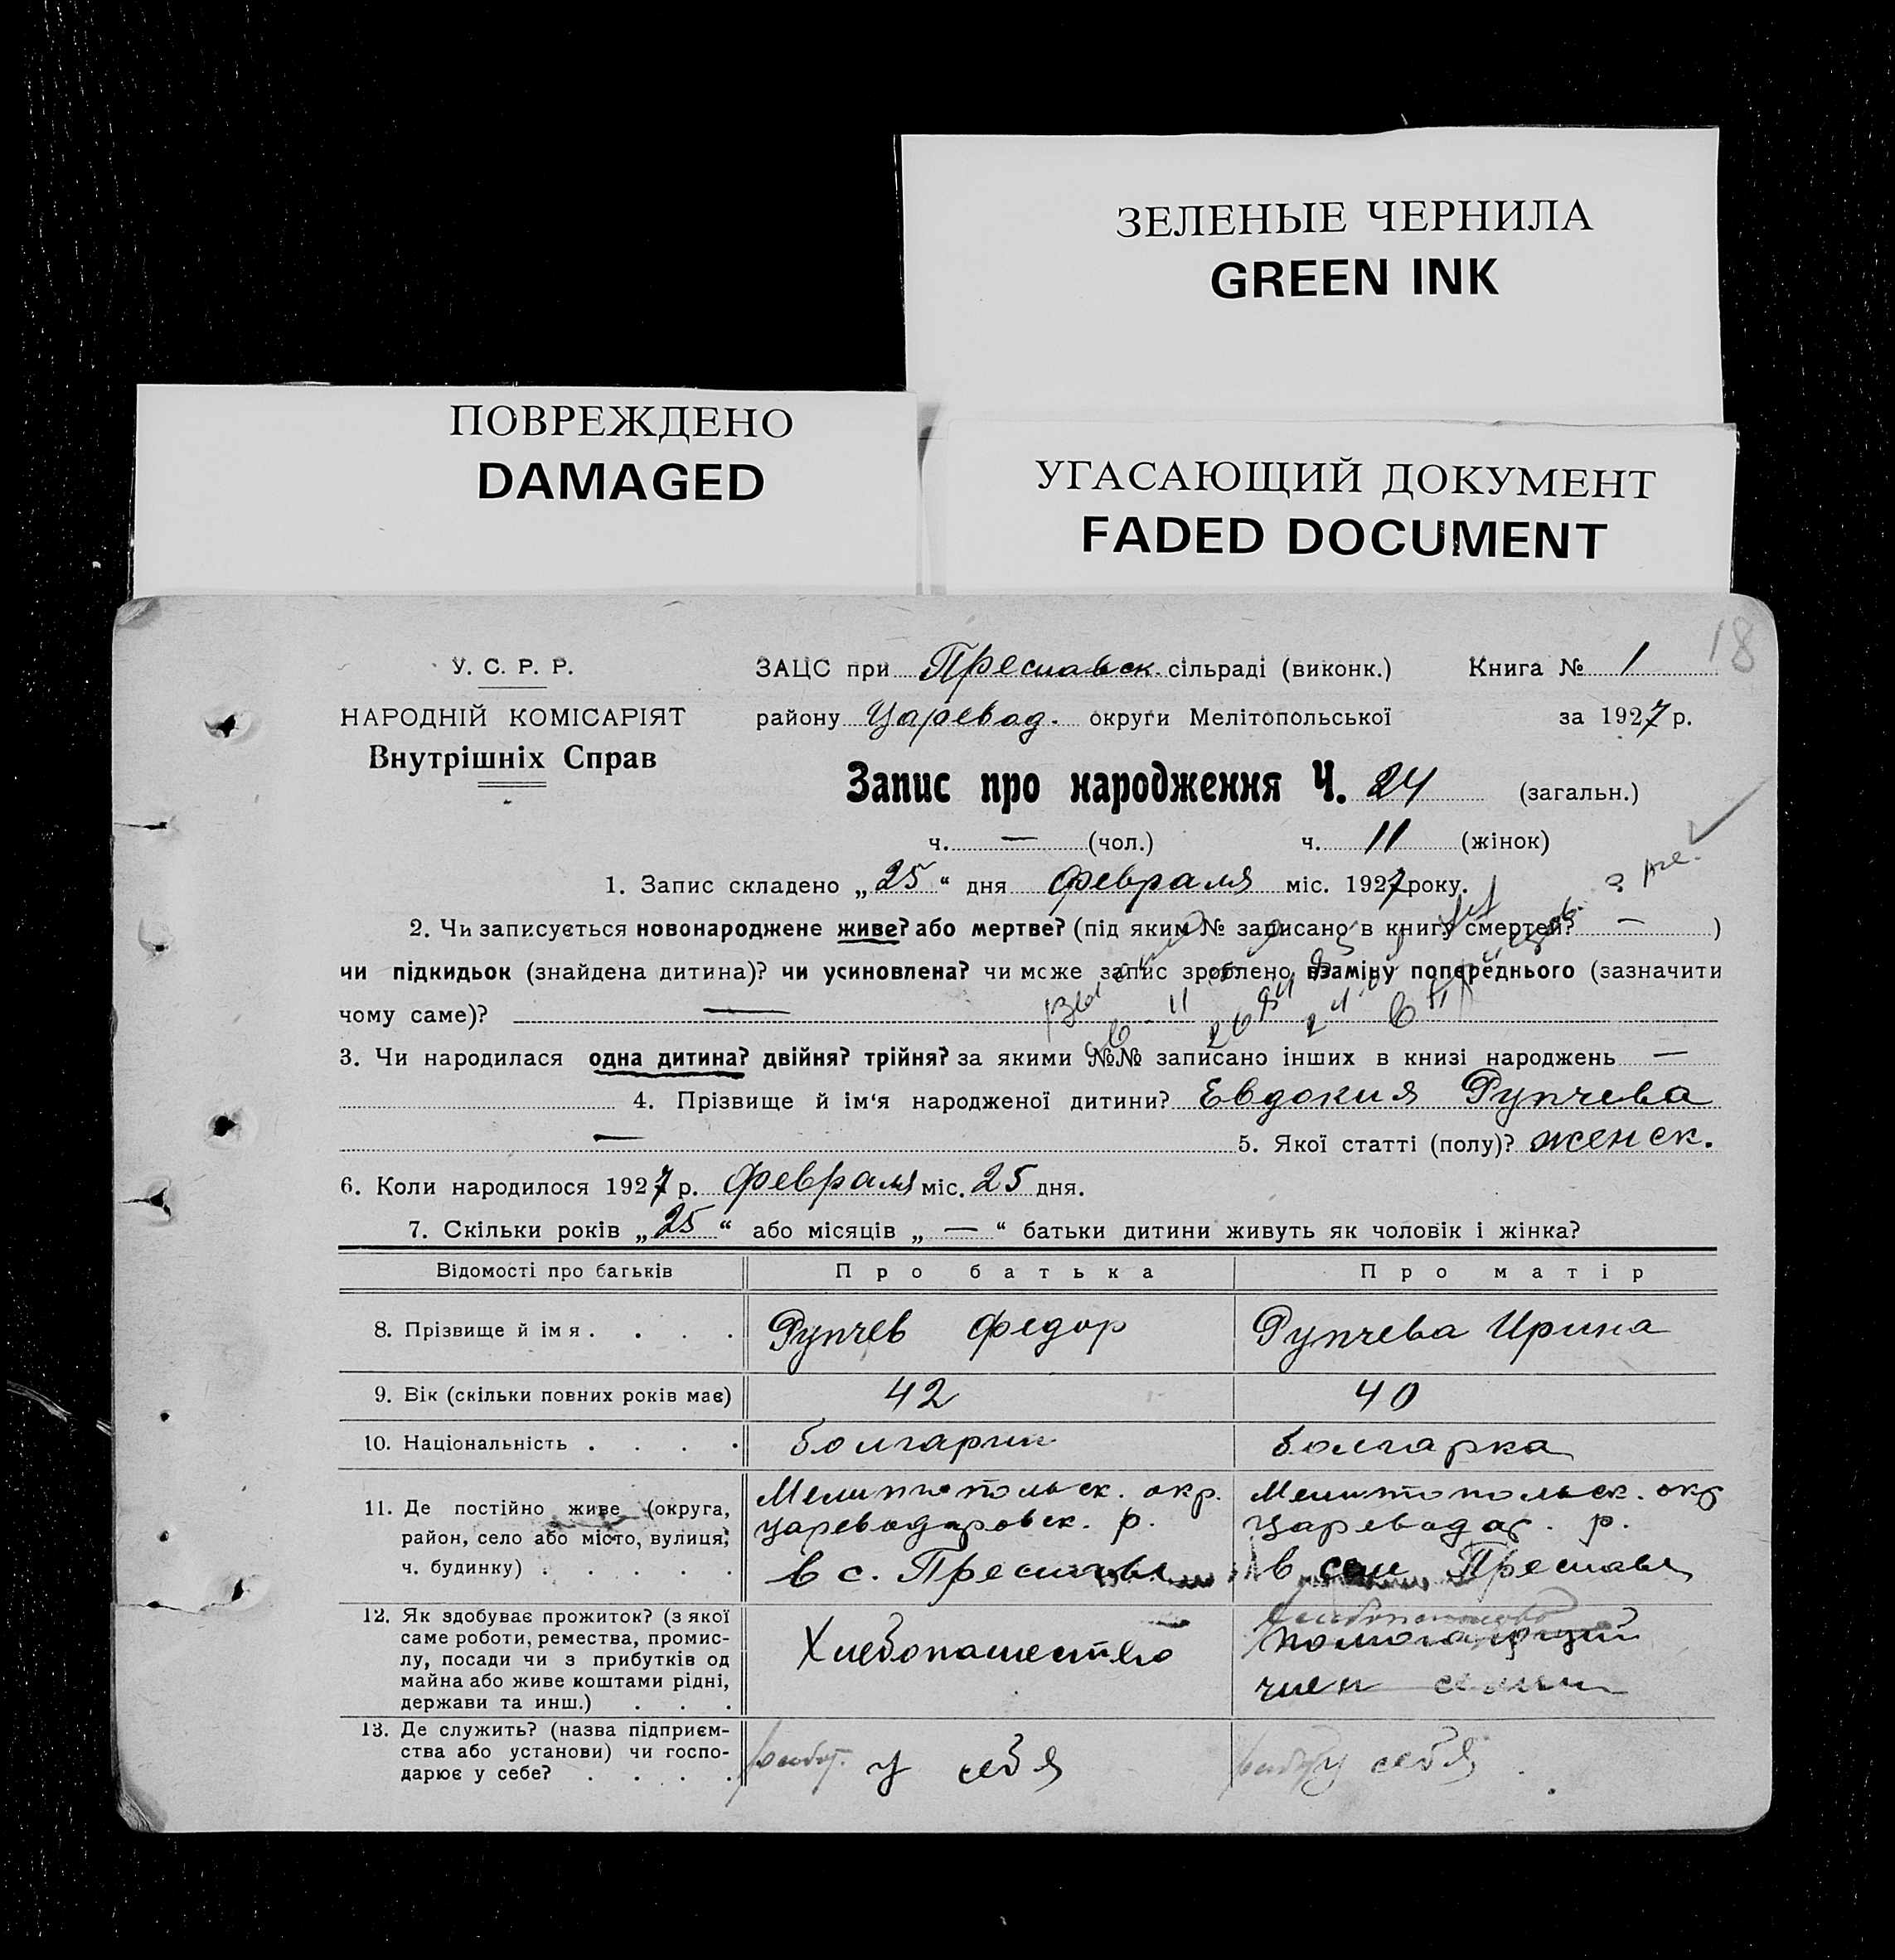 ЗЕЛЕНЫЕ ЧЕРНИЛА
GREEN INK
ПОВРЕЖДЕНО
DAMAGED
УГАСАЮЩИЙ ДОКУМЕНТ
FADED DOCUMENT
18
У. С. Р. Р.
НАРОДНІЙ КОМІСАРІЯТ
Внутрішніх Справ
ЗАЦС при Преславск. сільраді (виконк.) Книга № 1
району Царевод. округи Мелітопольської за 1927 р.
Запис про народження Ч. 24 (загальн.)
ч. — (чол.) ч. 11 (жінок)
1. Запис складено „25“ дня февраля міс. 1927 року.
2. Чи записується новонароджене живе? або мертве? (під яким № записано в книгу смертей? — )
чи підкидьок (знайдена дитина)? чи усиновлена? чи може запис зроблено взаміну попереднього (зазначити
чому саме)? —
3. Чи народилася одна дитина? двійня? трійня? за якими №№ записано інших в книзі народжень —
4. Прізвище й ім‘я народженої дитини? Евдокия Рупчева
— 5. Якої статті (полу)? женск.
6. Коли народилося 1927 р. февраля міс. 25 дня.
7. Скільки років „25“ або місяців „—“ батьки дитини живуть як чоловік і жінка?
Відомості про батьків Про батька Про матір
8. Прізвище й ім я . . . . Рупчев Федор Рупчева Ирина
9. Вік (скільки повних років має) 42 40
10. Національність . . . . болгарин болгарка
11. Де постійно живе (округа,
район, село або місто, вулиця,
ч. будинку) . . . . .
Мелитопольск. окр.
Цареводаровск. р.
в с. Преславе
Мелитопольск. окр
Цареводар. р.
в Преславе
12. Як здобуває прожиток? (з якої
саме роботи, ремества, промис-
лу, посади чи з прибутків од
майна або живе коштами рідні,
держави та инш.) . . .
Хлебопашество
помогающий
член семьи
13. Де служить? (назва підприєм-
ства або установи) чи госпо-
дарює у себе? . . . .
у себя
у себя